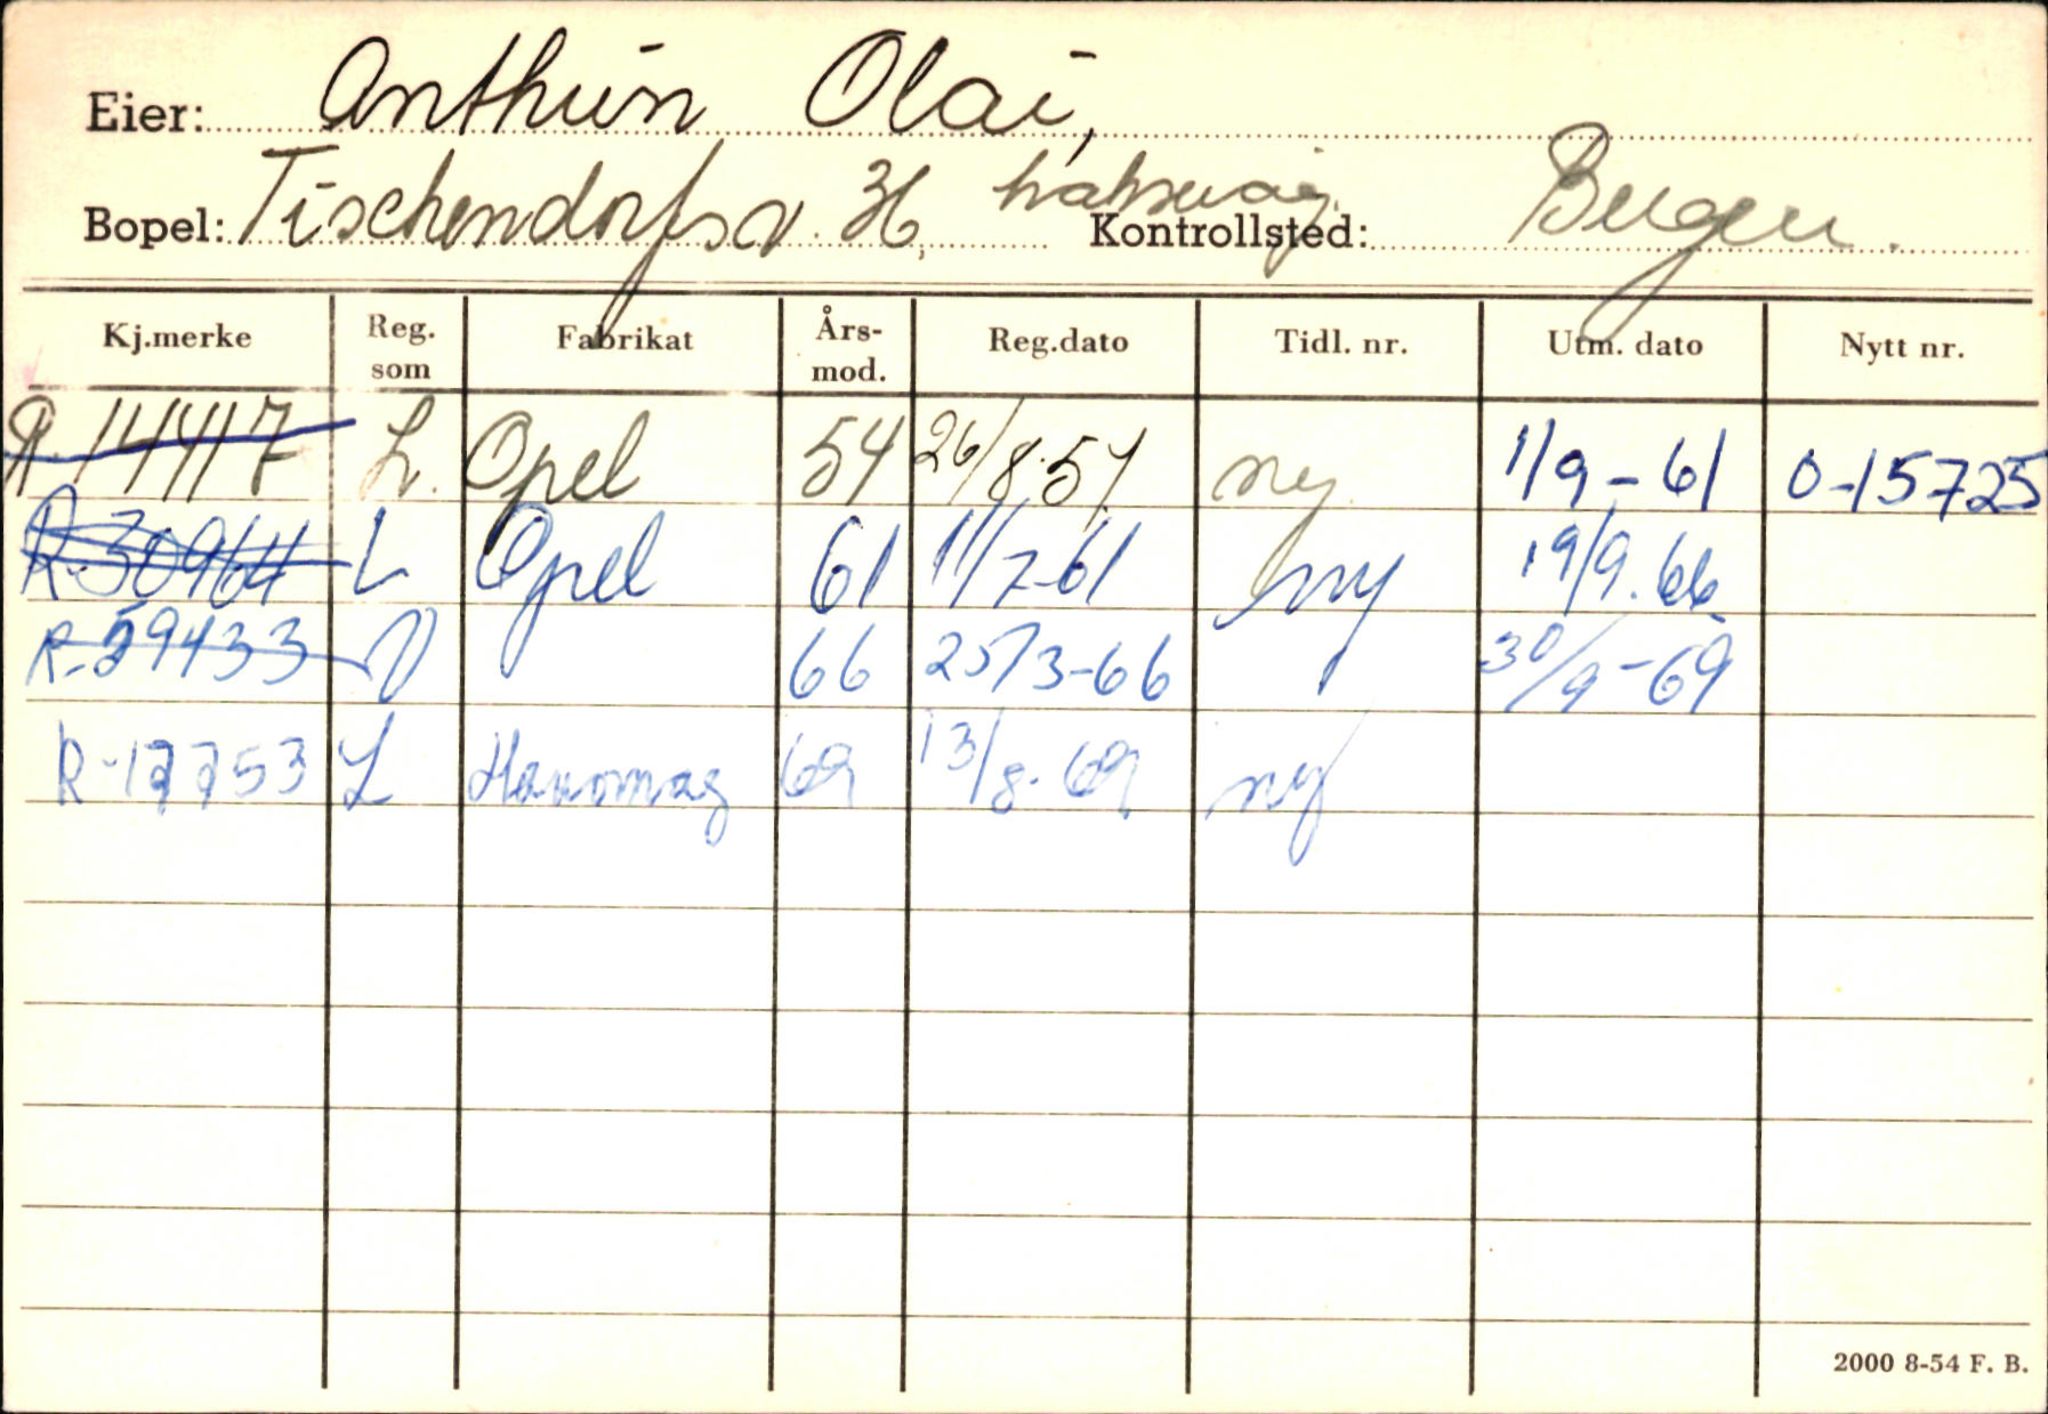 Eier: Anthun Olai,
Bopel: Tischendorfsv. 36, Laksevåg. Kontrollsted: Bergen.
Kj.merke Reg. som Fabrikat Års-mod. Reg.dato Tidl. nr. Utm. dato Nytt nr.
R-14417 L. Opel 54 26/8.54 ny 1/9-61 O-15725
R-30964 L Opel 61 11/7-61 ny 19/9.66
R-59433 V 66 25/3-66 30/9-69
R-17753 L Hanomag 69 13/8.69 ny
2000 8-54 F. B.